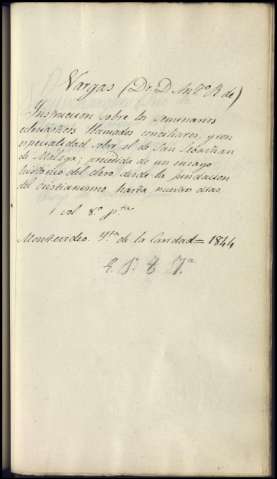 Vargas (Dr. D. Antº R de)
Instruccion sobre los seminarios
eclesiásticos llamados conciliares, y con
especialidad sobre el de San Sebastian
de Málaga; precedida de un ensayo
histórico del clero desde la fundacion
del cristianismo hasta nuestros dias.
1 vol 8º pta
Montevideo. Ypta de la Caridad = 1844